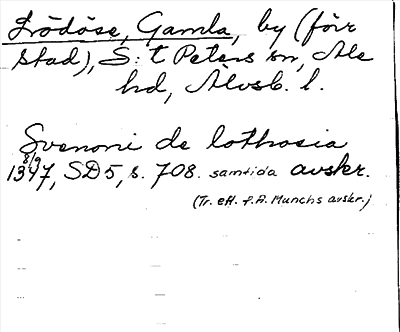 Lödöse, Gamla, by (förr
stad), S:t Peters sn, Ale
hd, Älvsb. l.
Svenoni de lothosia
8/9
1347, SD5, s. 708. samtida avskr.
(Tr. eft. P.A. Munchs avskr.)